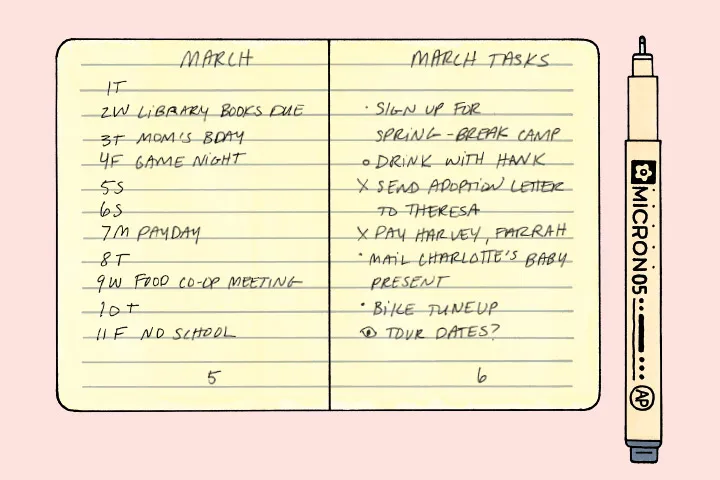 MARCH
1T
2W LIBRARY BOOKS DUE
3T MOM'S BDAY
4F GAME NIGHT
5S
6S
7M PAYDAY
8T
9W FOOD CO-OP MEETING
10T
11F NO SCHOOL
5
MARCH TASKS
· SIGN UP FOR
SPRING-BREAK CAMP
o DRINK WITH HANK
X SEND ADOPTION LETTER
TO THERESA
X PAY HARVEY, FARRAH
· MAIL CHARLOTTE'S BABY
PRESENT
· BIKE TUNEUP
👁 TOUR DATES?
6
MICRON 05
AP